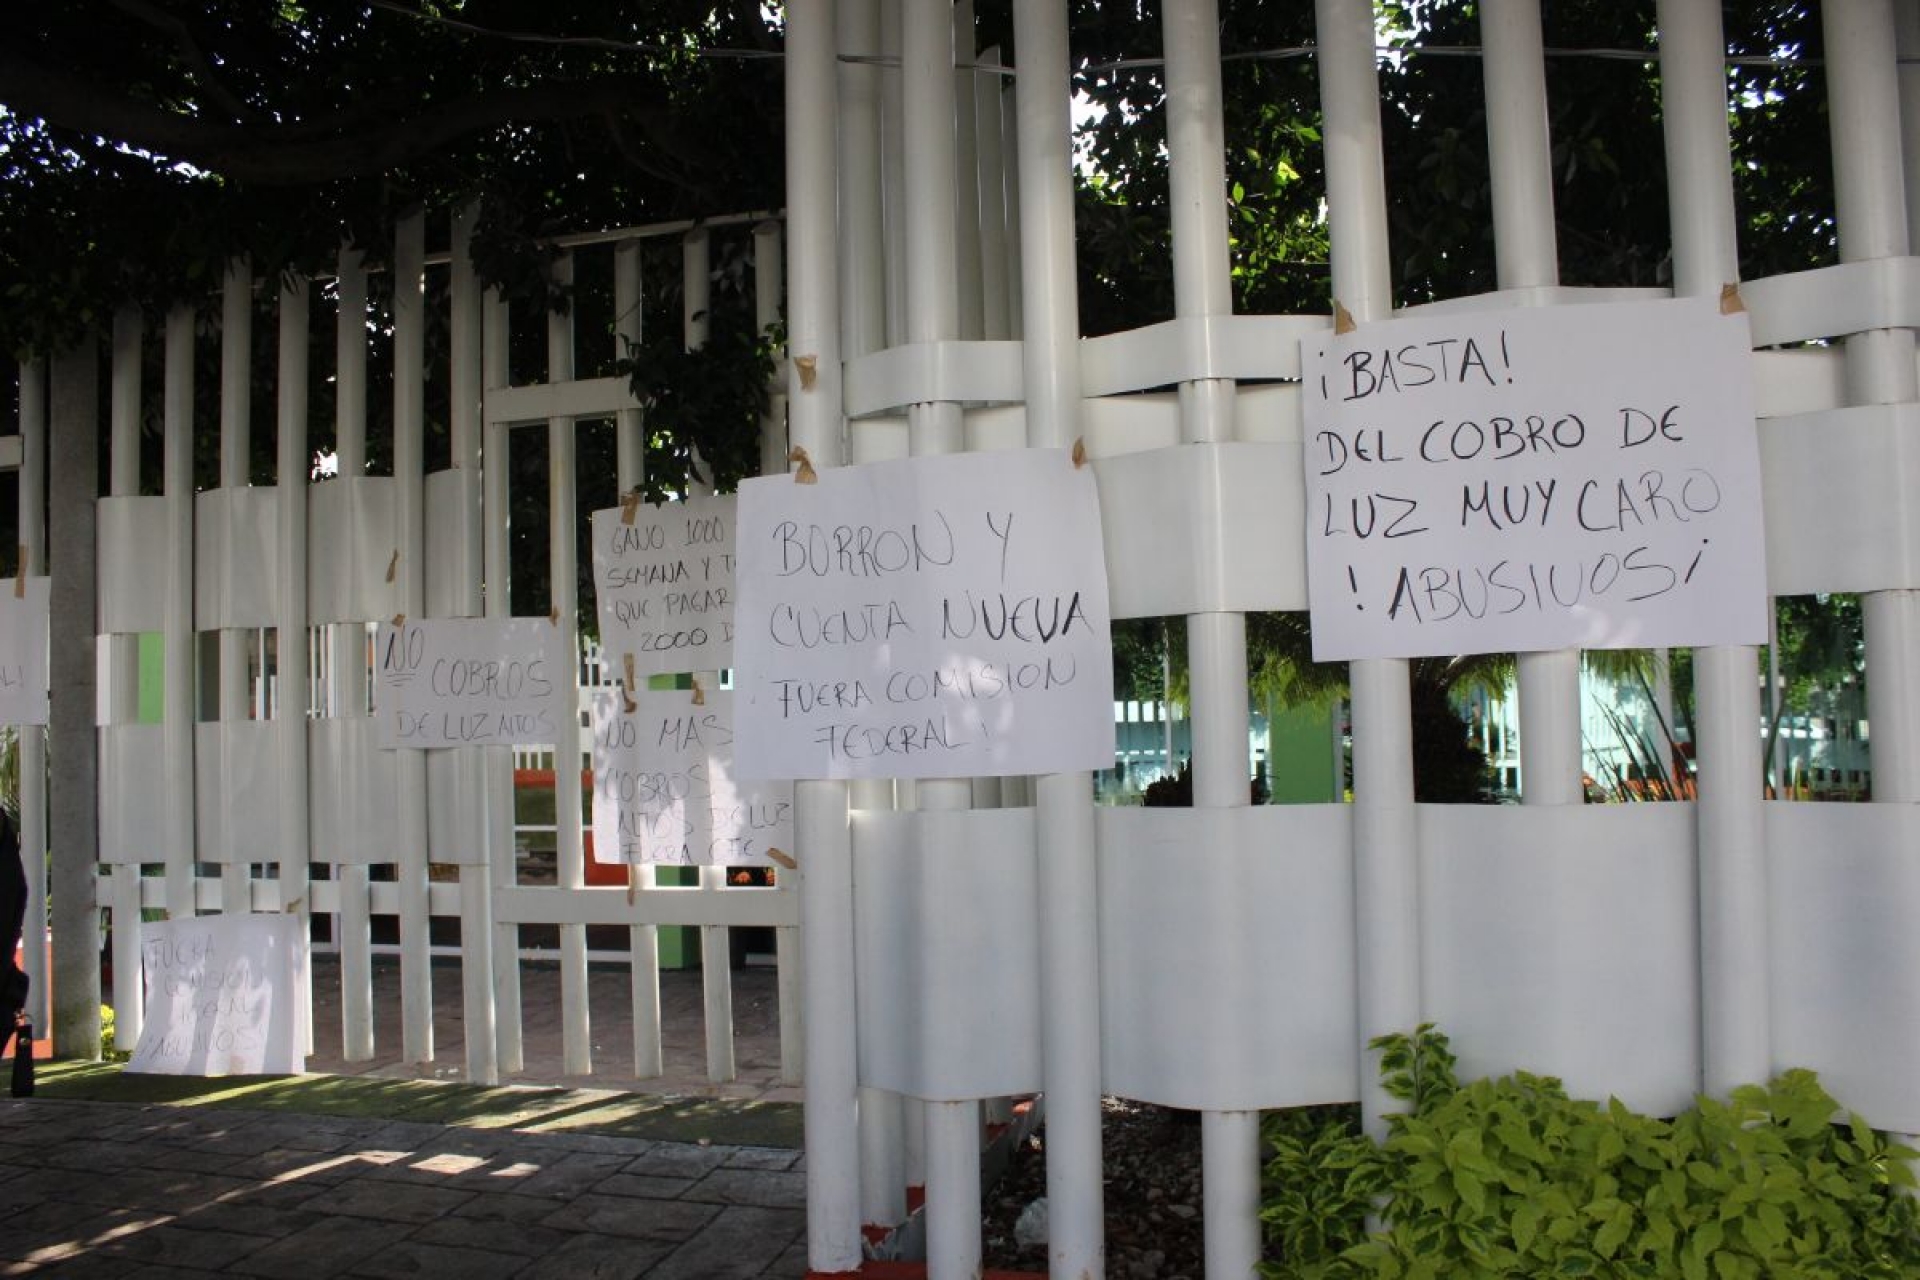 L!
NO COBROS
DE LUZ ALTOS
FUERA
COMISION
FEDERAL
¡ABUSIVOS!
GANO 1000
SEMANA Y
QUE PAGAR
2000
NO MAS
COBROS
ALTOS DE LUZ
FUERA CFE
BORRON Y
CUENTA NUEVA
¡FUERA COMISION
FEDERAL!
¡BASTA!
DEL COBRO DE
LUZ MUY CARO
!ABUSIVOS¡